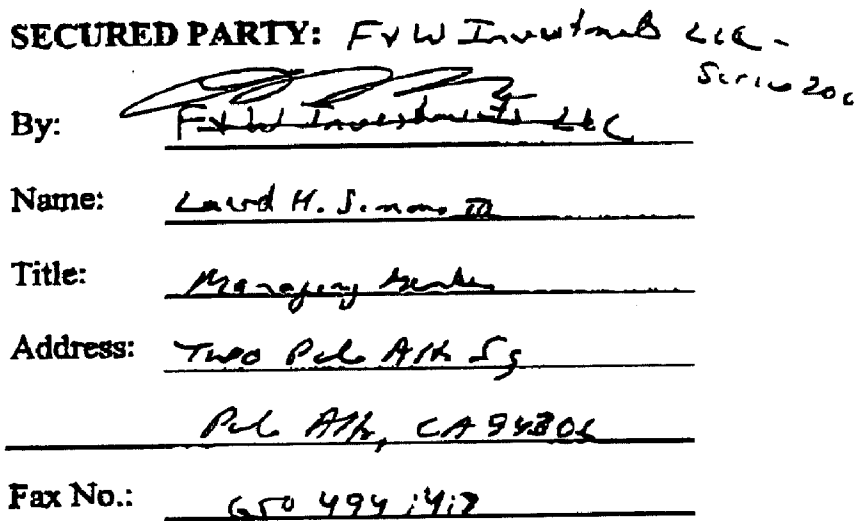 SECURED PARTY: F&W Investments LLC -
Series 200
By: F&W Investments LLC
Name: Laird H. Simons III
Title: Managing Member
Address: Two Palo Alto Sq
Palo Alto, CA 94306
Fax No.: 650 494 1417